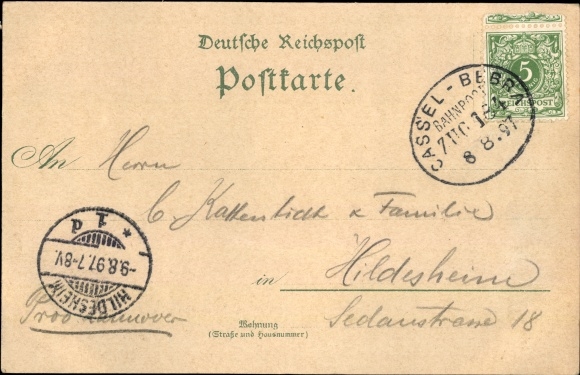 Deutsche Reichspost
Postkarte.
5
REICHSPOST
CASSEL - BEBRA
BAHNPOST
ZUG
8 8. 97
An Herrn
C. & Familie
in Hildesheim
Sedanstrasse 18
Prov Hannover
Wohnung
(Straße und Hausnummer)
HILDESHEIM
-9.8.97.7-8V.
* 1 d